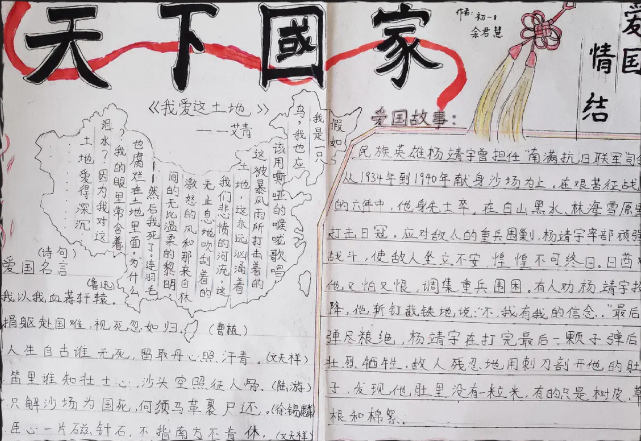 天下國家
作者:初一1
余君慧
爱国
情结
《我爱这土地》
——艾青
假如
我是一只
鸟,我也应
该用嘶哑的喉咙歌唱
这被暴风雨所打击着的
土地,这永远汹涌着
我们悲愤的河流,这
无止息地吹刮着的
激怒的风和那来自林
间的无比温柔的黎明
——然后我死了,连羽毛
也腐烂在土地里面。为什么
我的眼里常含着
泪水?因为我对这
土地爱得深沉
(诗句)
爱国名言
我以我血荐轩辕。(鲁迅)
捐躯赴国难,视死忽如归。(曹植)
人生自古谁无死,留取丹心照汗青。(文天祥)
笛里谁知壮士心,沙头空照征人骨。(陆游)
只解沙场为国死,何须马革裹尸还。(徐锡麟)
臣心一片磁针石,不指南方不肯休。(文天祥)
爱国故事:
民族英雄杨靖宇曾担任南满抗日联军司
从1934年到1940年献身沙场为上,在艰苦征战
的六年中,他身先士卒,在白山黑水、林海雪原
打击日寇,应对敌人的重兵围剿,杨靖宇率部顽强
战斗,使敌人坐立不安,惶惶不可终日。日酋
他又怕又恨,调集重兵围困。有人劝杨靖宇投
降,他斩钉截铁地说:“不,我有我的信念。”最后
弹尽粮绝,杨靖宇在打完最后一颗子弹后
壮烈牺牲。敌人残忍地用刺刀剖开他的肚
子,发现他肚里没有一粒米,有的只是树皮、草
根和棉絮。